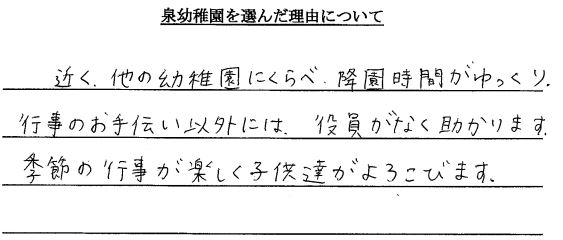 泉幼稚園を選んだ理由について
近く、他の幼稚園にくらべ、降園時間がゆっくり。
行事のお手伝い以外には、役員がなく助かります。
季節の行事が楽しく子供達がよろこびます。